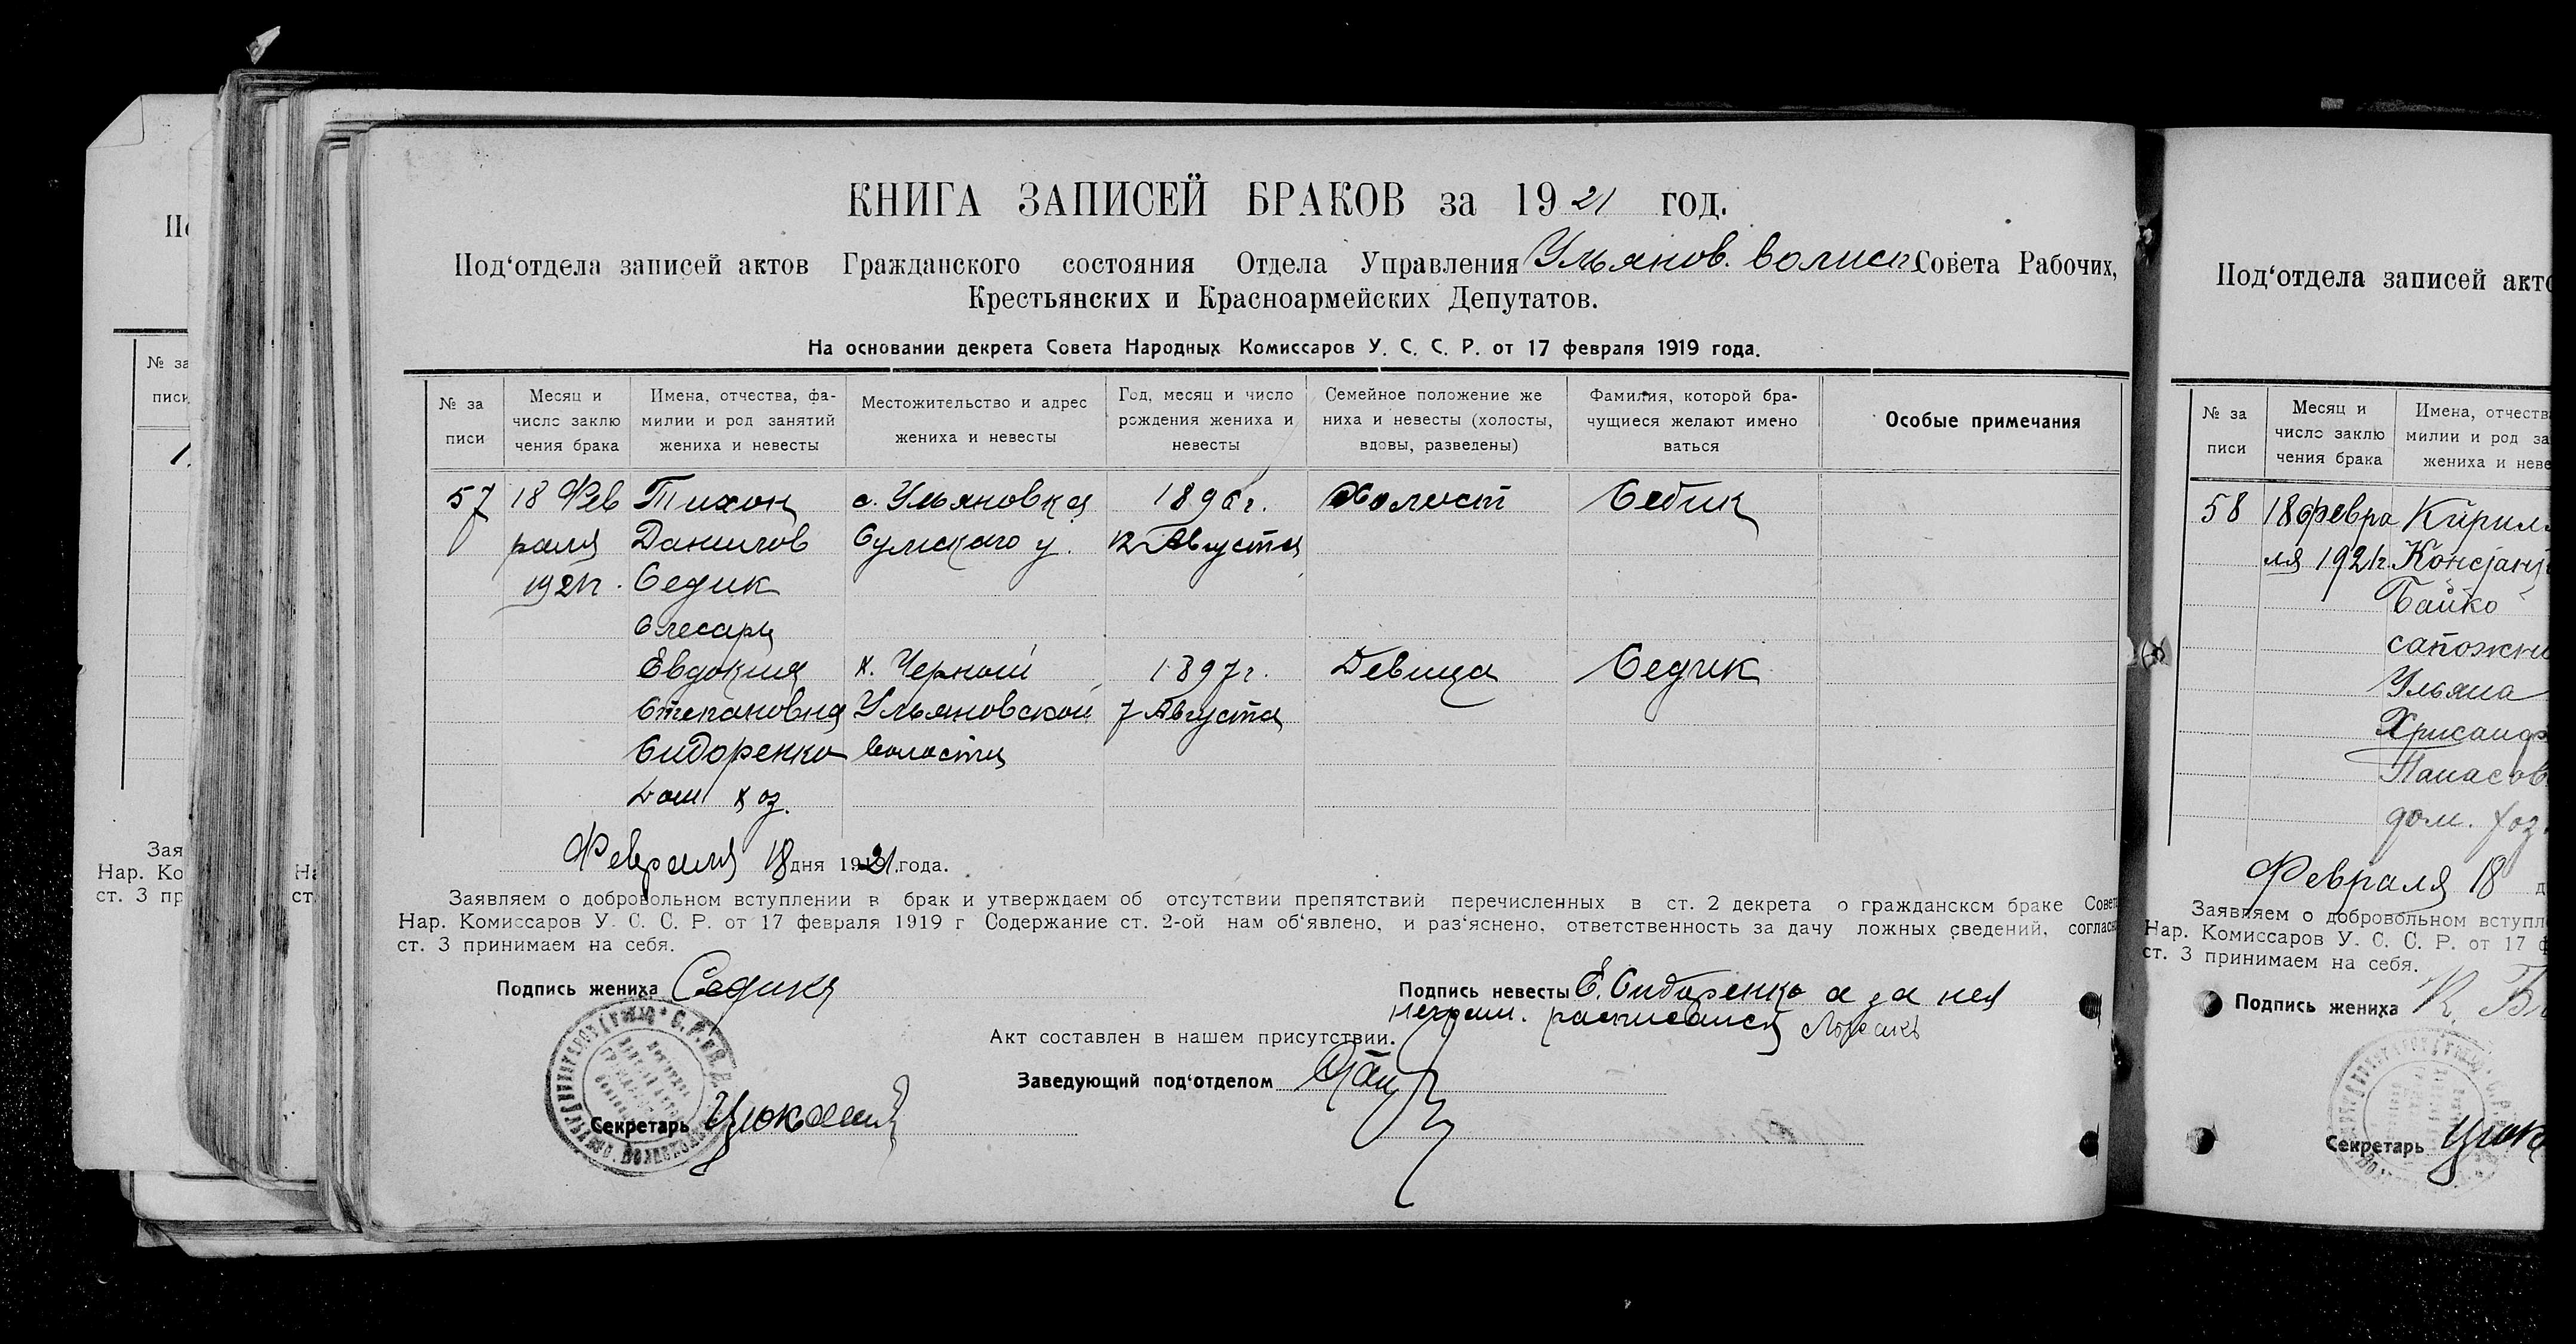 КНИГА ЗАПИСЕЙ БРАКОВ за 1921 год.
Под‘отдела записей актов Гражданского состояния Отдела Управления Ульянов. волисп. Совета Рабочих,
Крестьянских и Красноармейских Депутатов.
На основании декрета Совета Народных Комиссаров У. С. С. Р. от 17 февраля 1919 года.
№ за
писи
Месяц и
число заклю
чения брака
Имена, отчества, фа-
милии и род занятий
жениха и невесты
Местожительство и адрес
жениха и невесты
Год, месяц и число
рождения жениха и
невесты
Семейное положение же
ниха и невесты (холосты,
вдовы, разведены)
Фамилия, которой бра-
чущиеся желают имено
ваться
Особые примечания
57 18 Фев Тихон с. Ульяновка 1896 г. Холост Седик
раля Данилов Сумского у. 12 Августа
1921 г. Седик
Слесарь
Евдокия х. Черной 1897 г. Девица Седик
Степановна Ульяновской 7 Августа
Сидоренко волости
Дом хоз.
Февраля 18 дня 1921 года.
Заявляем о добровольном вступлении в брак и утверждаем об отсутствии препятствий перечисленных в ст. 2 декрета о гражданском браке Совета
Нар. Комиссаров У. С. С. Р. от 17 февраля 1919 г Содержание ст. 2-ой нам об‘явлено, и раз‘яснено, ответственность за дачу ложных сведений, согласно
ст. 3 принимаем на себя.
Подпись жениха Седикъ
Подпись невесты Е. Сидоренко а за нея
неграм. расписался
Акт составлен в нашем присутствии.
Заведующий под‘отделом
Секретарь
Под‘отдела записей акто
№ за
писи
Месяц и
число заклю
чения брака
Имена, отчеств
милии и род за
жениха и неве
58 18 февра Кирил
ля 1921 г. Констант
Байко
сапожни
Ульяна
Хрисанф
Панасов
дом. хоз.
Февраля 18 д
Заявляем о добровольном вступл
Нар. Комиссаров У. С. С. Р. от 17 ф
ст. 3 принимаем на себя.
Подпись жениха К. Б
Секретарь
№ за
писи
Зая
Нар. Ко
ст. 3 пр